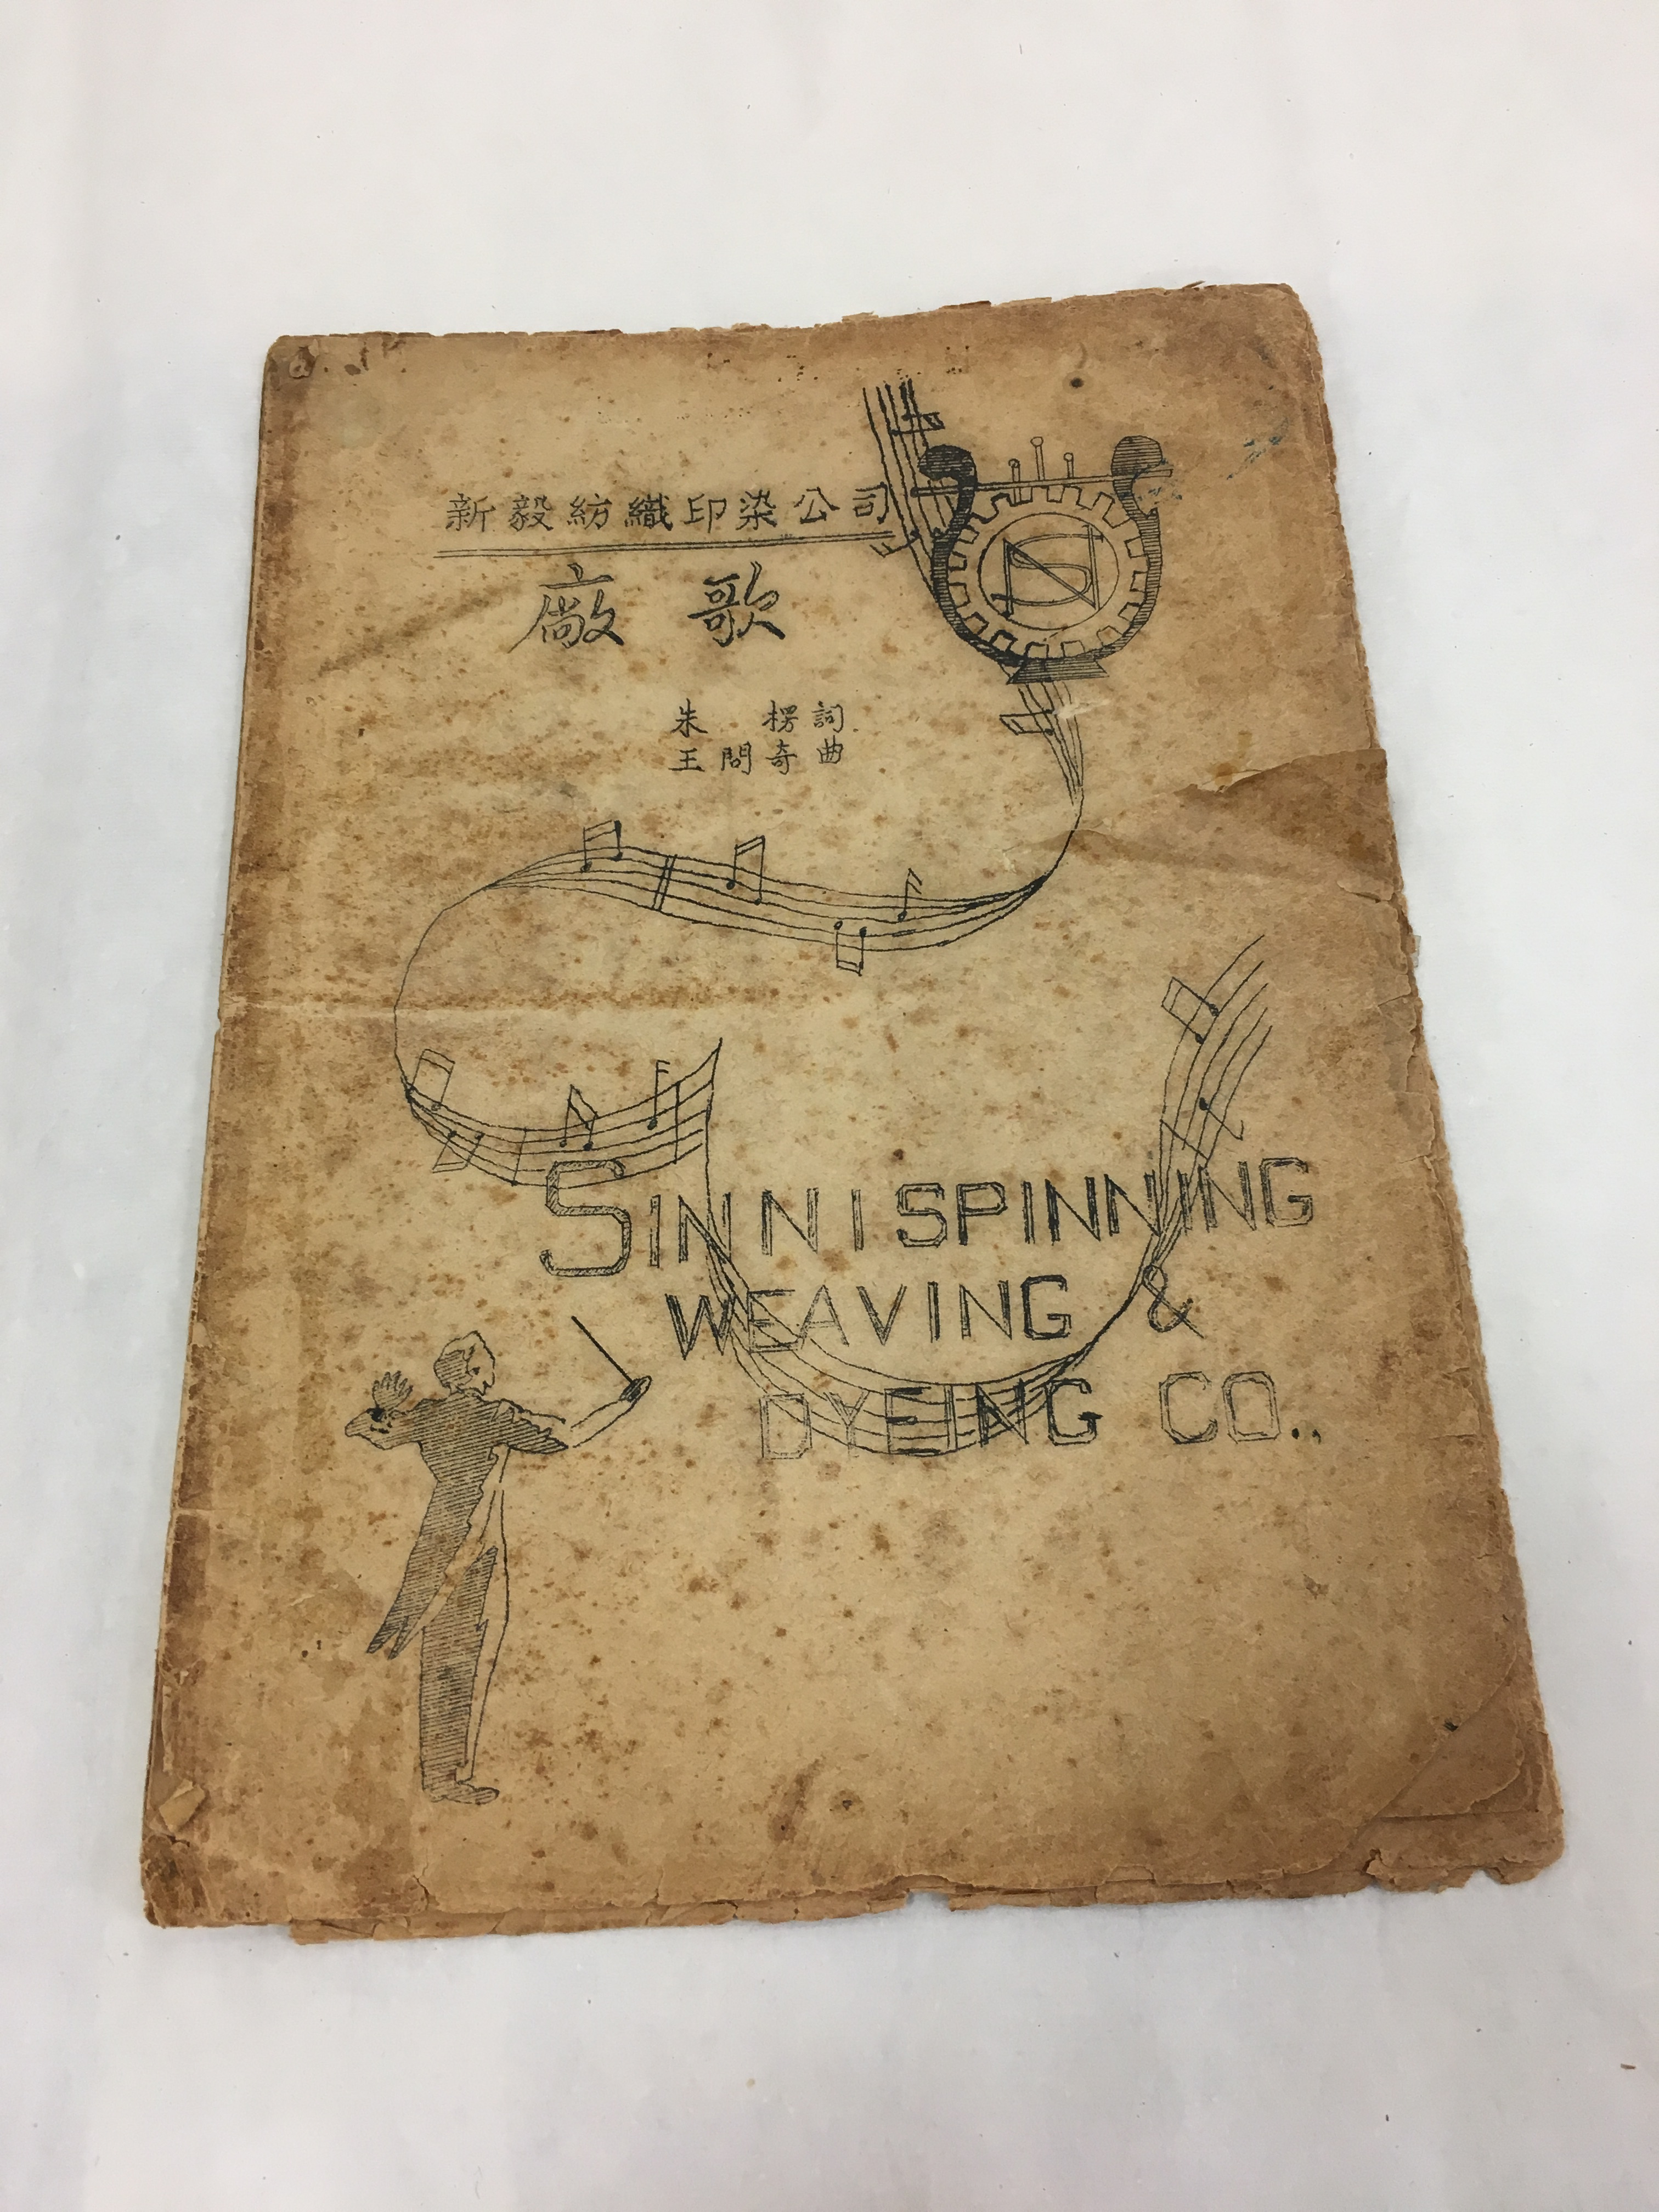 新毅紡織印染公司
廠歌
朱楞詞
王問奇曲
SINNI SPINNING
WEAVING &
DYEING CO.,